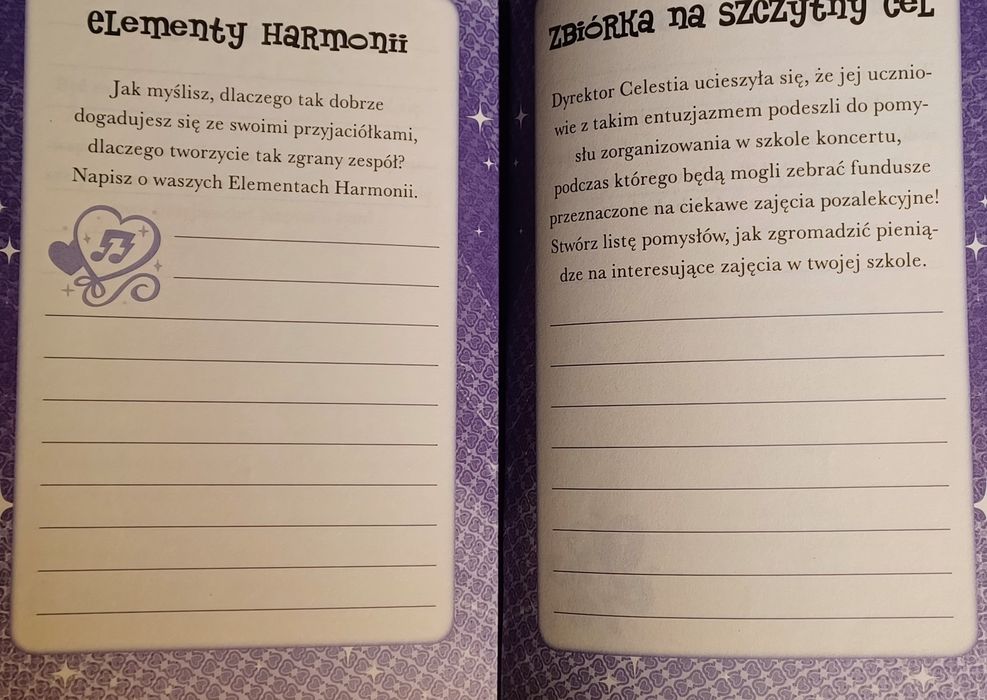 Elementy Harmonii
Jak myślisz, dlaczego tak dobrze
dogadujesz się ze swoimi przyjaciółkami,
dlaczego tworzycie tak zgrany zespół?
Napisz o waszych Elementach Harmonii.
Zbiórka na szczytny cel
Dyrektor Celestia ucieszyła się, że jej ucznio-
wie z takim entuzjazmem podeszli do pomy-
słu zorganizowania w szkole koncertu,
podczas którego będą mogli zebrać fundusze
przeznaczone na ciekawe zajęcia pozalekcyjne!
Stwórz listę pomysłów, jak zgromadzić pienią-
dze na interesujące zajęcia w twojej szkole.